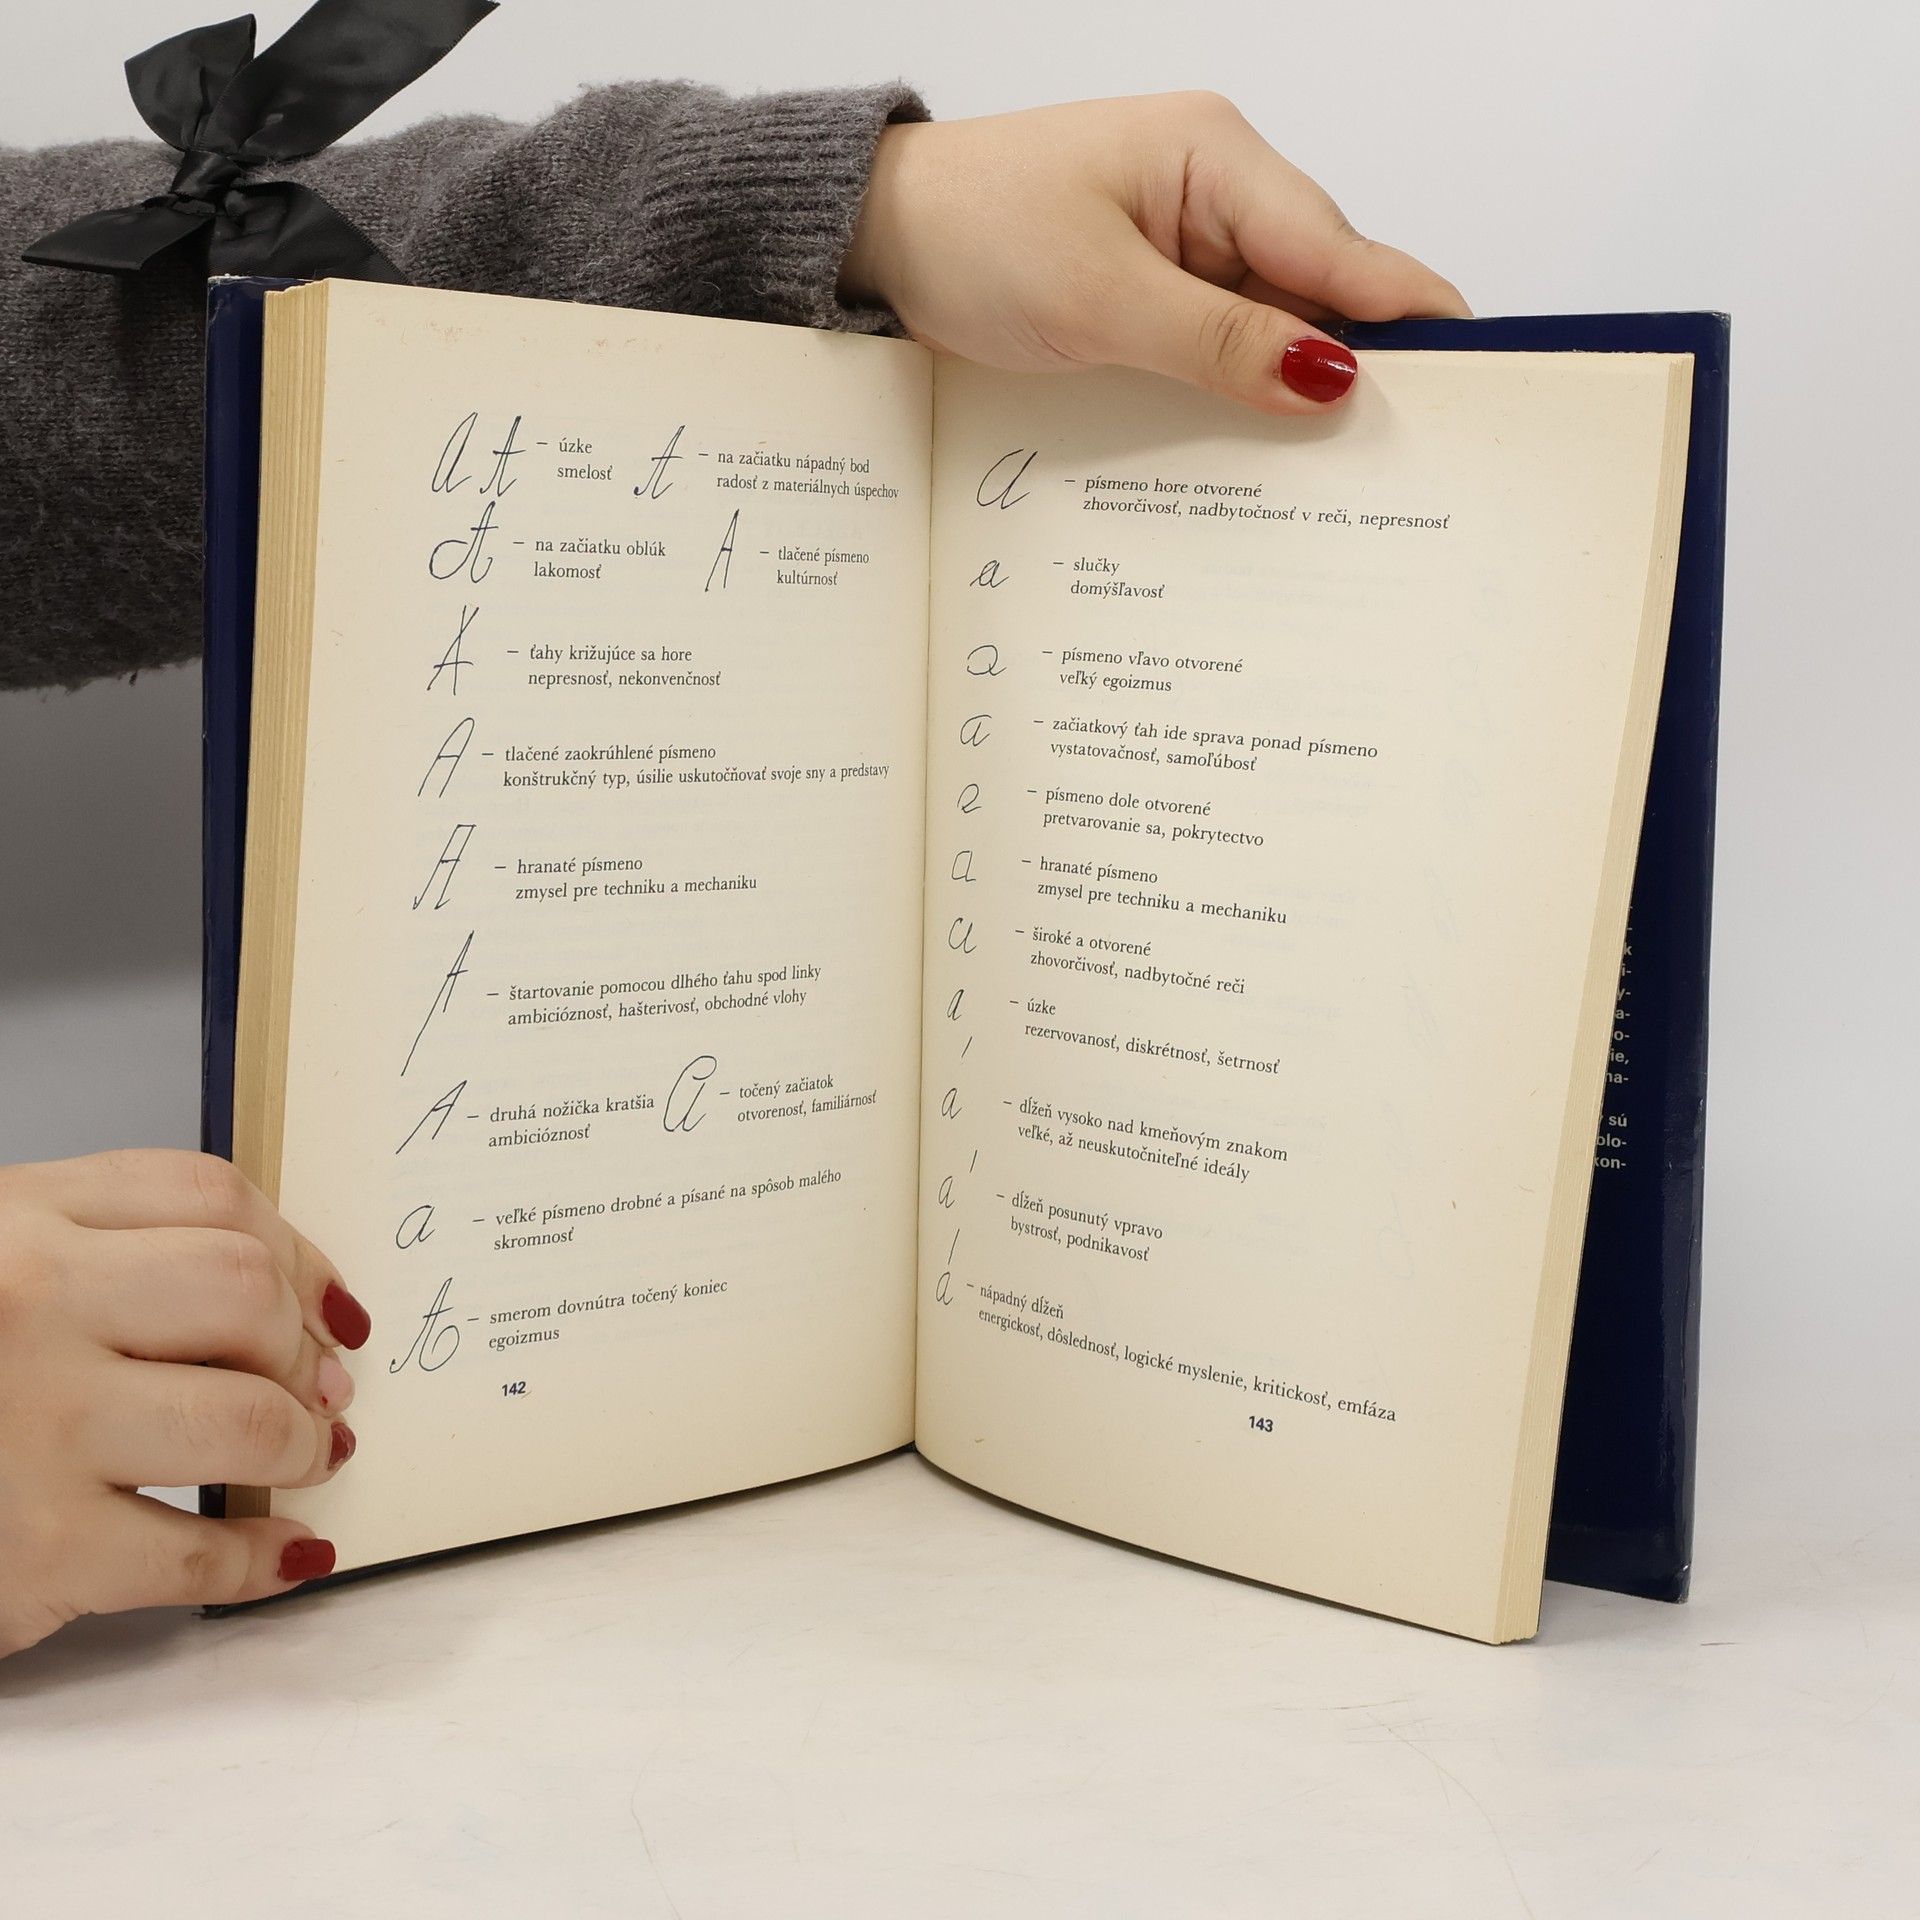 – úzke
smelosť
– na začiatku nápadný bod
radosť z materiálnych úspechov
– na začiatku oblúk
lakomosť
– tlačené písmeno
kultúrnosť
– ťahy križujúce sa hore
nepresnosť, nekonvenčnosť
– tlačené zaokrúhlené písmeno
konštrukčný typ, úsilie uskutočňovať svoje sny a predstavy
– hranaté písmeno
zmysel pre techniku a mechaniku
– štartovanie pomocou dlhého ťahu spod linky
ambicióznosť, hašterivosť, obchodné vlohy
– druhá nožička kratšia
ambicióznosť
– točený začiatok
otvorenosť, familiárnosť
– veľké písmeno drobné a písané na spôsob malého
skromnosť
– smerom dovnútra točený koniec
egoizmus
142
– písmeno hore otvorené
zhovorčivosť, nadbytočnosť v reči, nepresnosť
– slučky
domýšľavosť
– písmeno vľavo otvorené
veľký egoizmus
– začiatkový ťah ide sprava ponad písmeno
vystatovačnosť, samoľúbosť
– písmeno dole otvorené
pretvarovanie sa, pokrytectvo
– hranaté písmeno
zmysel pre techniku a mechaniku
– široké a otvorené
zhovorčivosť, nadbytočné reči
– úzke
rezervovanosť, diskrétnosť, šetrnosť
– dĺžeň vysoko nad kmeňovým znakom
veľké, až neuskutočniteľné ideály
– dĺžeň posunutý vpravo
bystrosť, podnikavosť
– nápadný dĺžeň
energickosť, dôslednosť, logické myslenie, kritickosť, emfáza
143